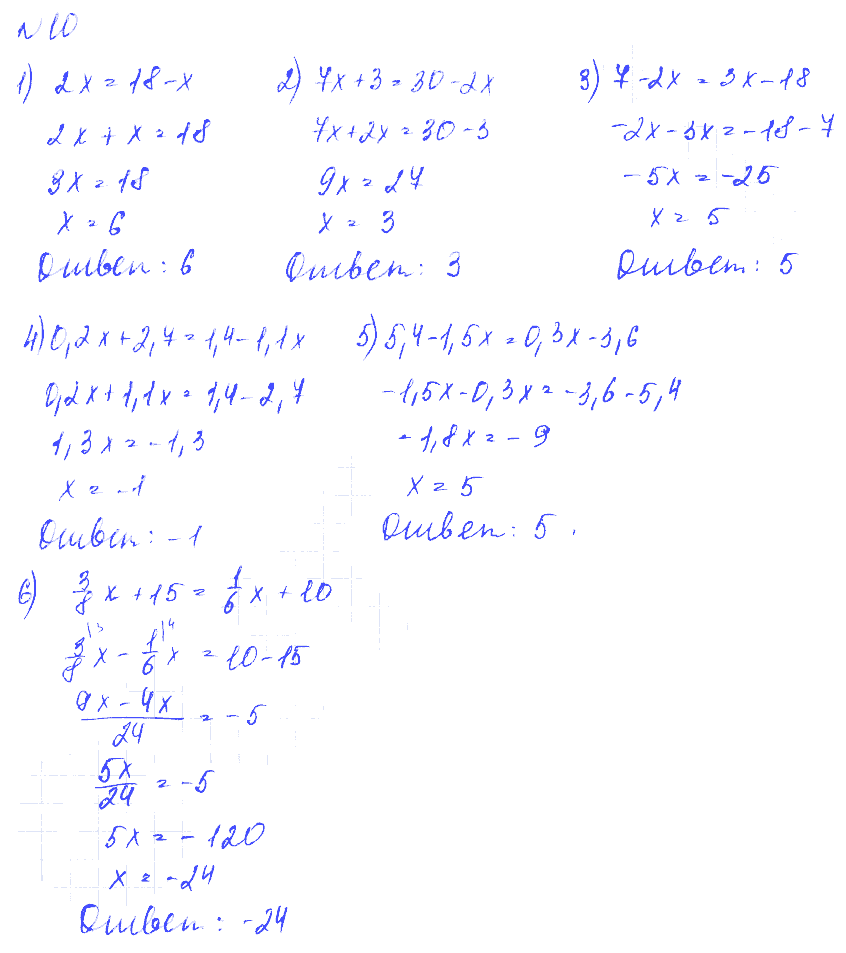 №10
1) 2x = 18 - x
2x + x = 18
3x = 18
x = 6
Ответ: 6
2) 7x + 3 = 30 - 2x
7x + 2x = 30 - 3
9x = 27
x = 3
Ответ: 3
3) 7 - 2x = 3x - 18
-2x - 3x = -18 - 7
-5x = -25
x = 5
Ответ: 5
4) 0,2x + 2,7 = 1,4 - 1,1x
0,2x + 1,1x = 1,4 - 2,7
1,3x = -1,3
x = -1
Ответ: -1
5) 5,4 - 1,5x = 0,3x - 3,6
-1,5x - 0,3x = -3,6 - 5,4
-1,8x = -9
x = 5
Ответ: 5.
6) 3/8 x + 15 = 1/6 x + 10
3/8 |3 x - 1/6 |4 x = 10 - 15
(9x - 4x)/24 = -5
5x/24 = -5
5x = -120
x = -24
Ответ: -24